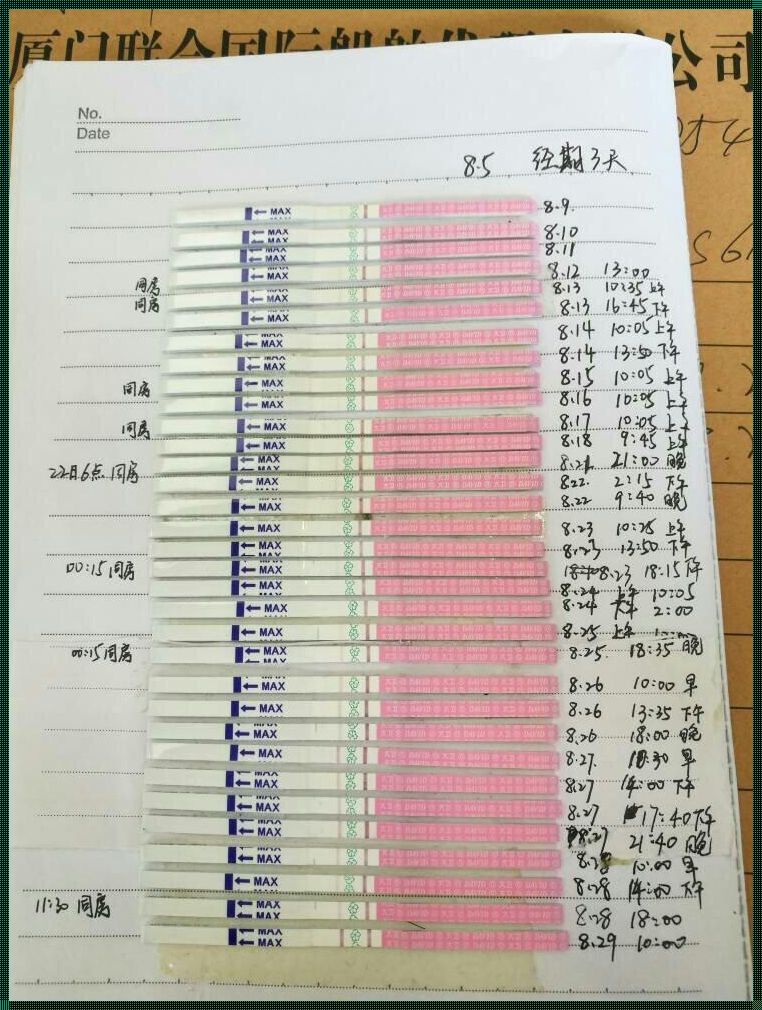 厦门联合国际船舶代理有限公司
No.
Date
8.5 经期3天
MAX 8.9
MAX 8.10
MAX 8.11
MAX 8.12 13:00
同房 MAX 8.13 10:35 上午
同房 MAX 8.13 16:45 下午
MAX 8.14 10:05 上午
MAX 8.14 13:50 下午
同房 MAX 8.15 10:05 上午
MAX 8.16 10:05 上午
同房 MAX 8.17 10:05 上午
MAX 8.18 9:45 上午
22日6点同房 MAX 8.21 21:00 晚
MAX 8.22 2:15 下午
MAX 8.22 9:40 晚
MAX 8.23 10:25 上午
MAX 8.23 13:50 下午
00:15同房 MAX 8.23 18:15 下午
MAX 8.24 上午 10:05
MAX 8.24 下午 2:00
MAX 8.25 上午
00:15同房 MAX 8.25 18:35 晚
MAX 8.26 10:00 早
MAX 8.26 13:35 下午
MAX 8.26 18:00 晚
MAX 8.27 30 早
MAX 8.27 14:00 下午
MAX 8.27 17:40 下午
MAX 8.27 21:40 晚
MAX 8.28 10:00 早
MAX 8.28 14:00 下午
11:30 同房 MAX 8.28 18:00
MAX 8.29 10:00